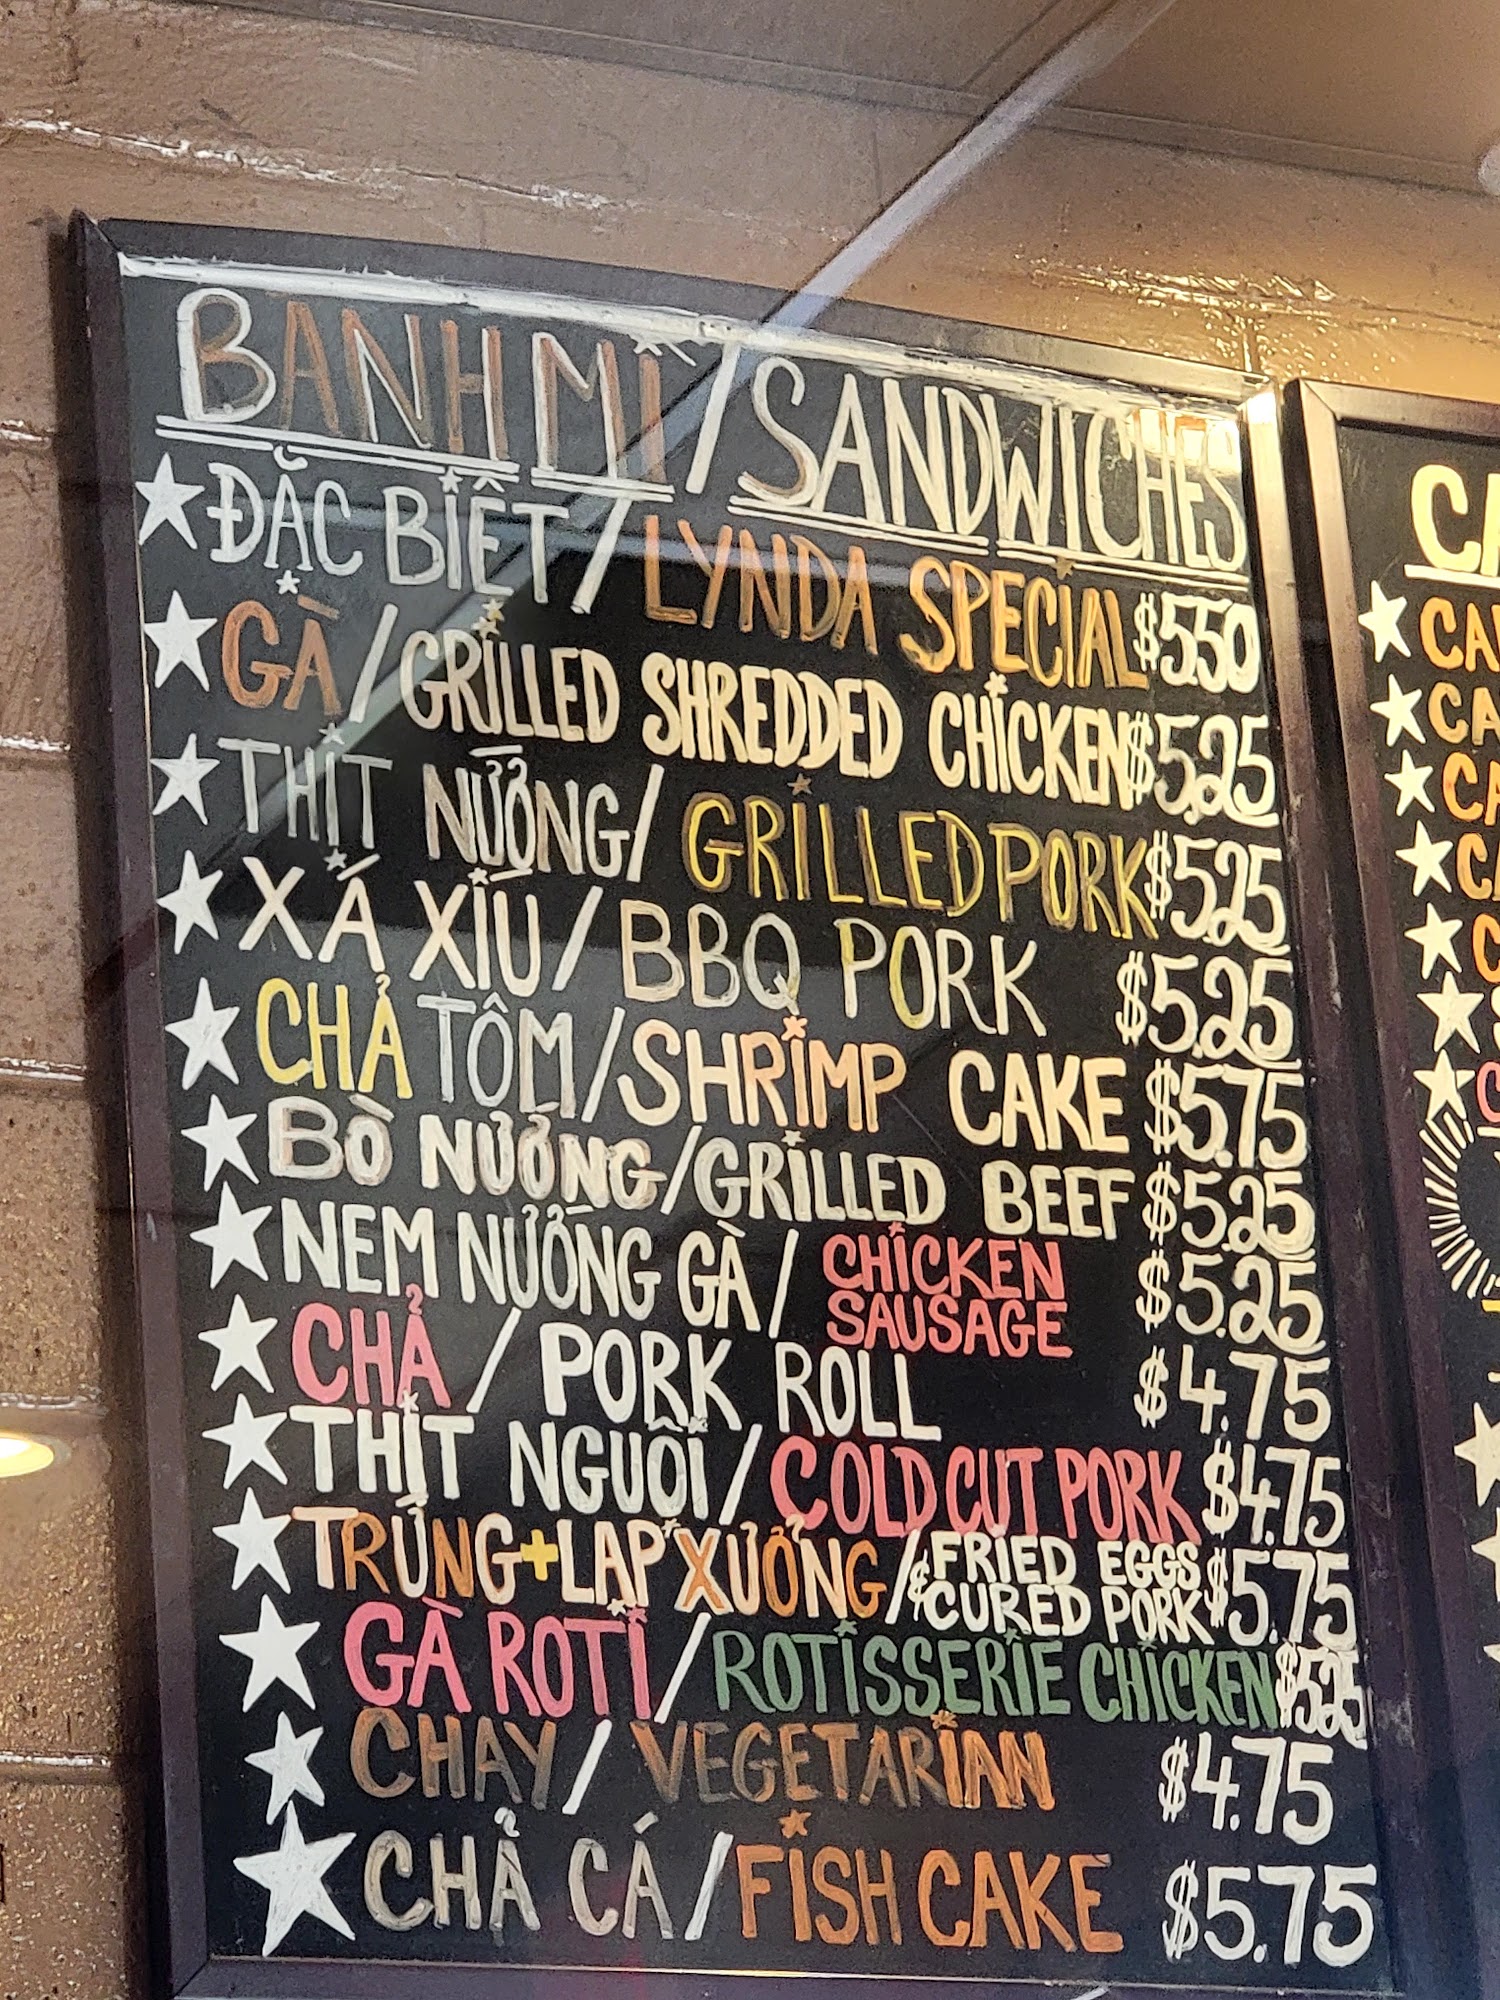 BANH MI / SANDWICHES
ĐẶC BIỆT / LYNDA SPECIAL $5.50
GÀ / GRILLED SHREDDED CHICKEN $5.25
THỊT NƯỚNG / GRILLED PORK $5.25
XÁ XÍU / BBQ PORK $5.25
CHẢ TÔM / SHRIMP CAKE $5.75
BÒ NƯỚNG / GRILLED BEEF $5.25
NEM NƯỚNG GÀ / CHICKEN SAUSAGE $5.25
CHẢ / PORK ROLL $4.75
THỊT NGUỘI / COLD CUT PORK $4.75
TRỨNG + LAP XƯỞNG / FRIED EGGS & CURED PORK $5.75
GÀ ROTI / ROTISSERIE CHICKEN $5.25
CHAY / VEGETARIAN $4.75
CHẢ CÁ / FISH CAKE $5.75